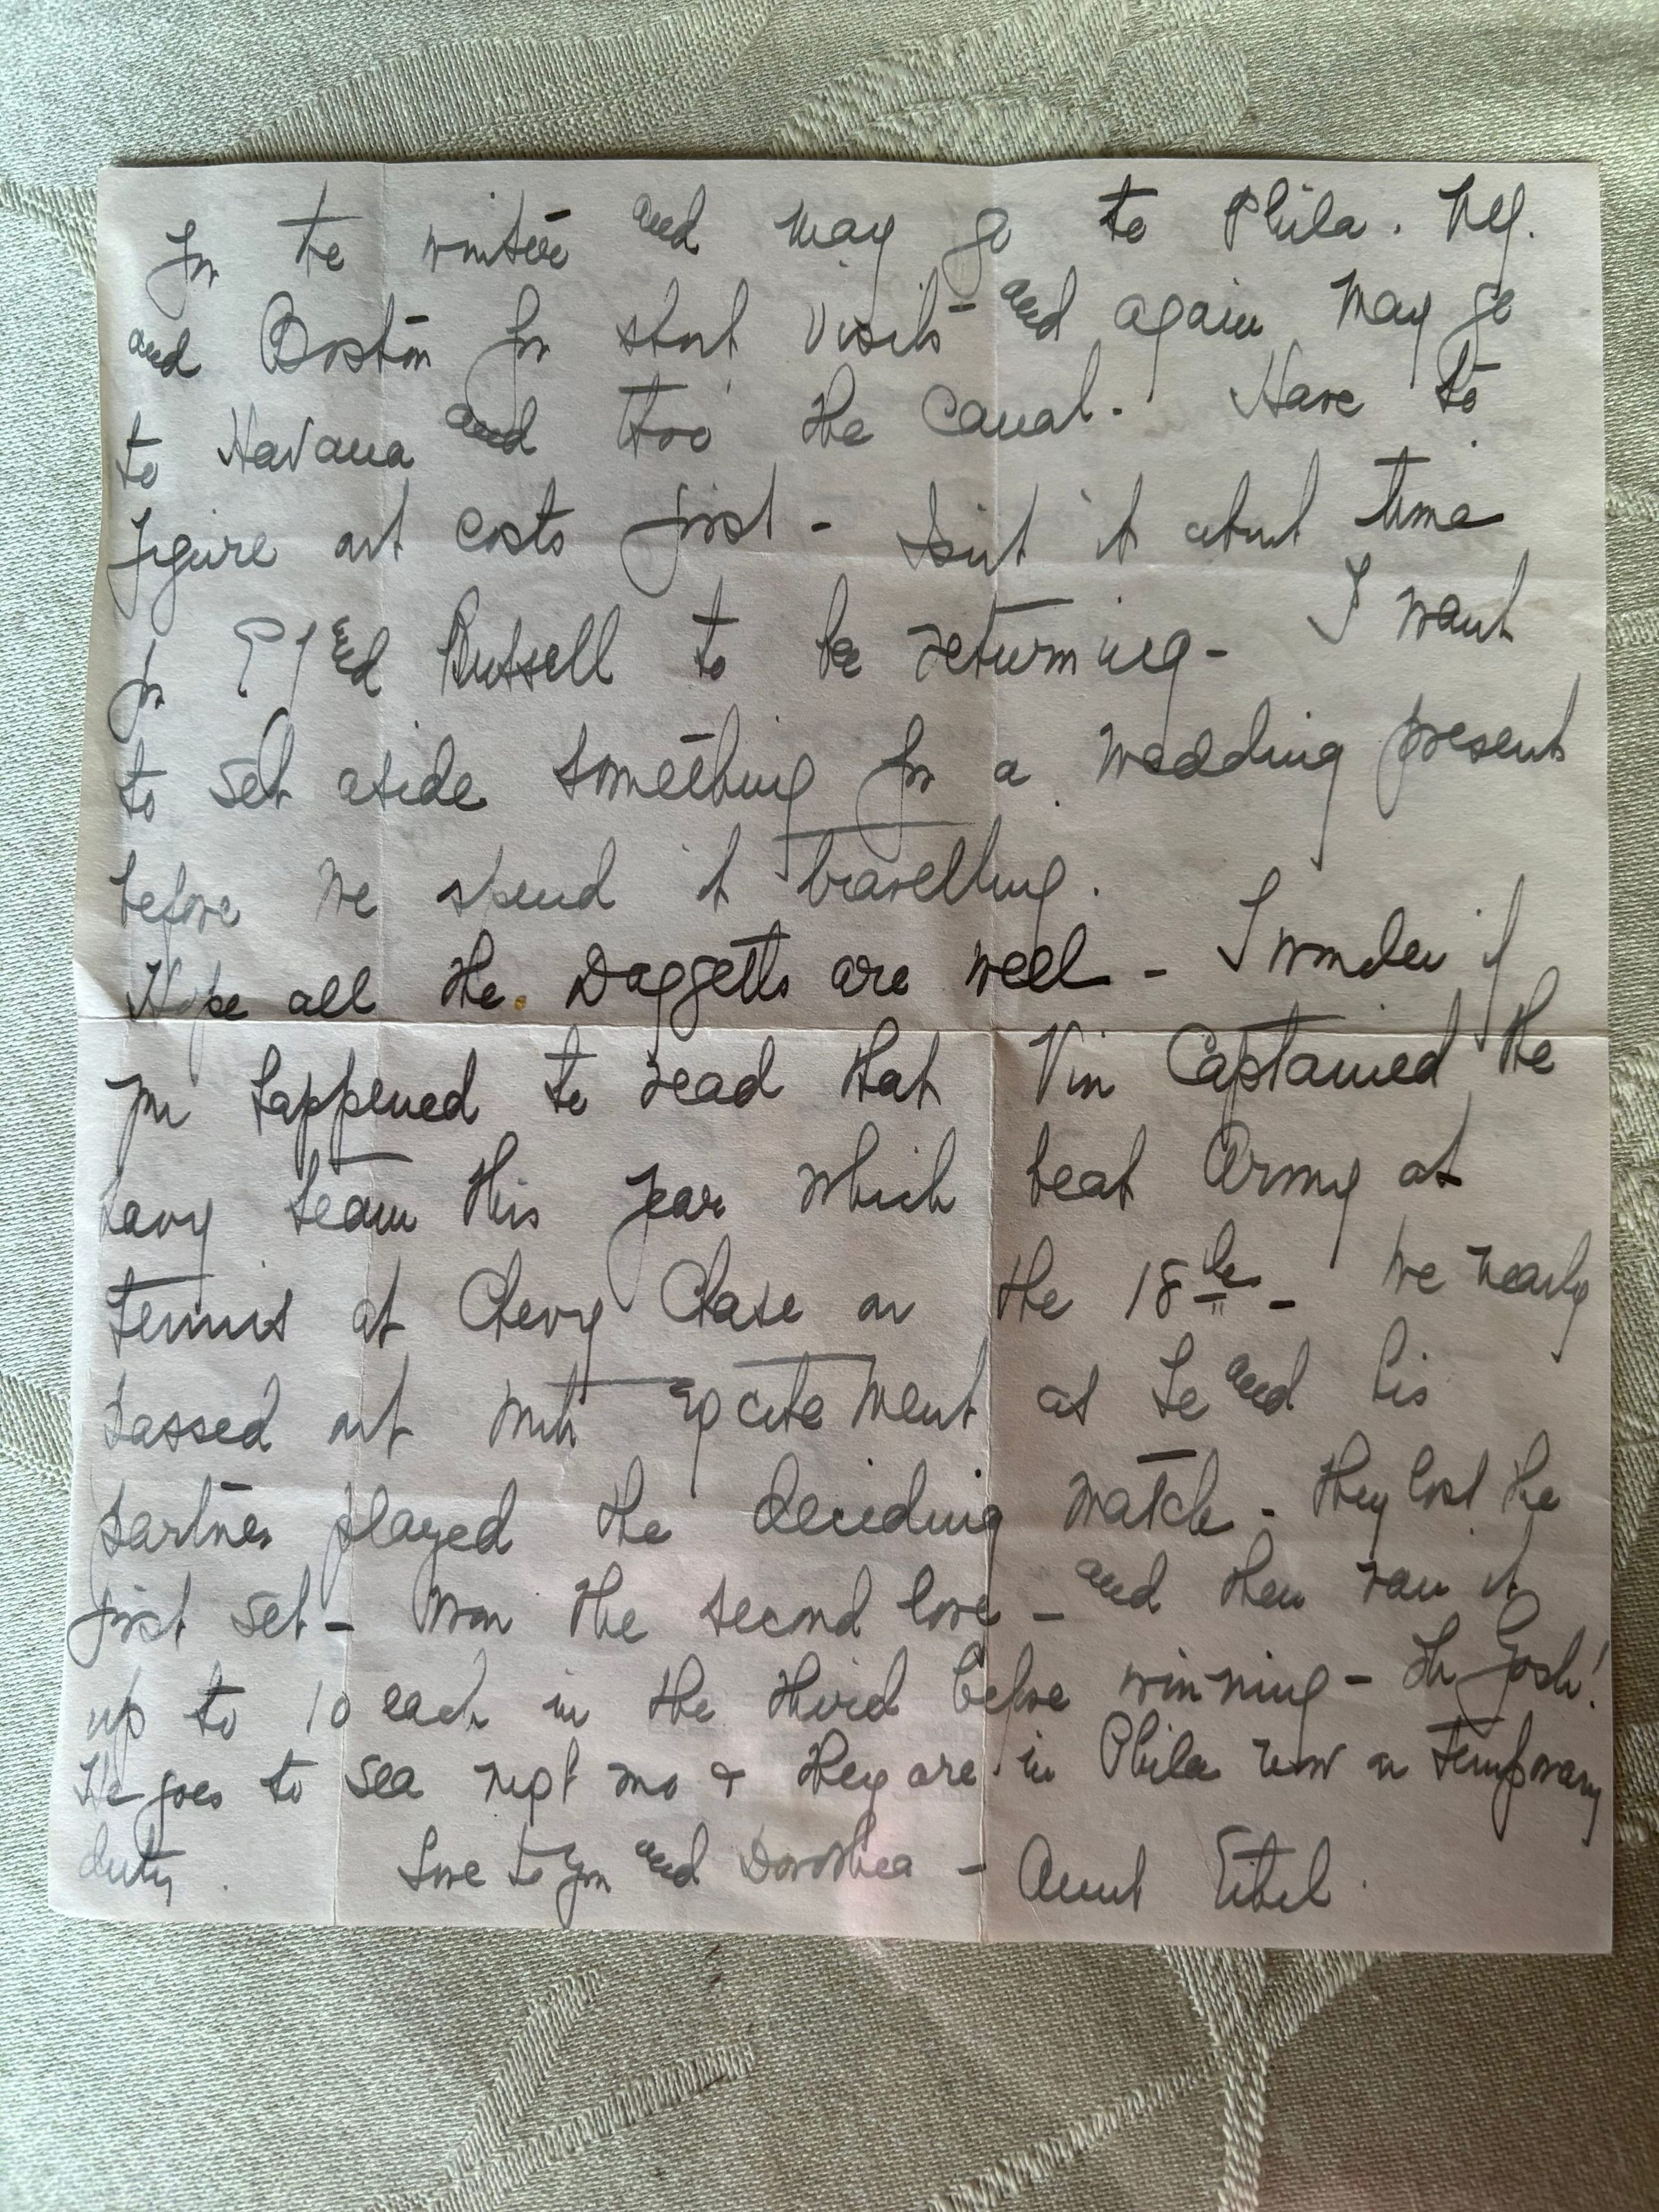 for the winter and may go to Phila. N.Y.
and Boston for short visits and again may go
to Havana and thro' the Canal. Have to
figure out costs first - Isn't it about time
for and Russell to be returning - I want
to set aside something for a wedding present
before we spend it travelling.
Hope all the Daggetts are well - I wonder if
you happened to read that Vin Captained the
Navy team this year which beat Army at
tennis at Chevy Chase on the 18th - We nearly
passed out with excitement as he and his
partner played the deciding match - They lost the
first set - won the second love - and then ran it
up to 10 each in the third before winning - Oh Gosh!
He goes to sea next mo & they are in Phila now on temporary
duty. Love to you and Dorothea - Aunt Ethel.